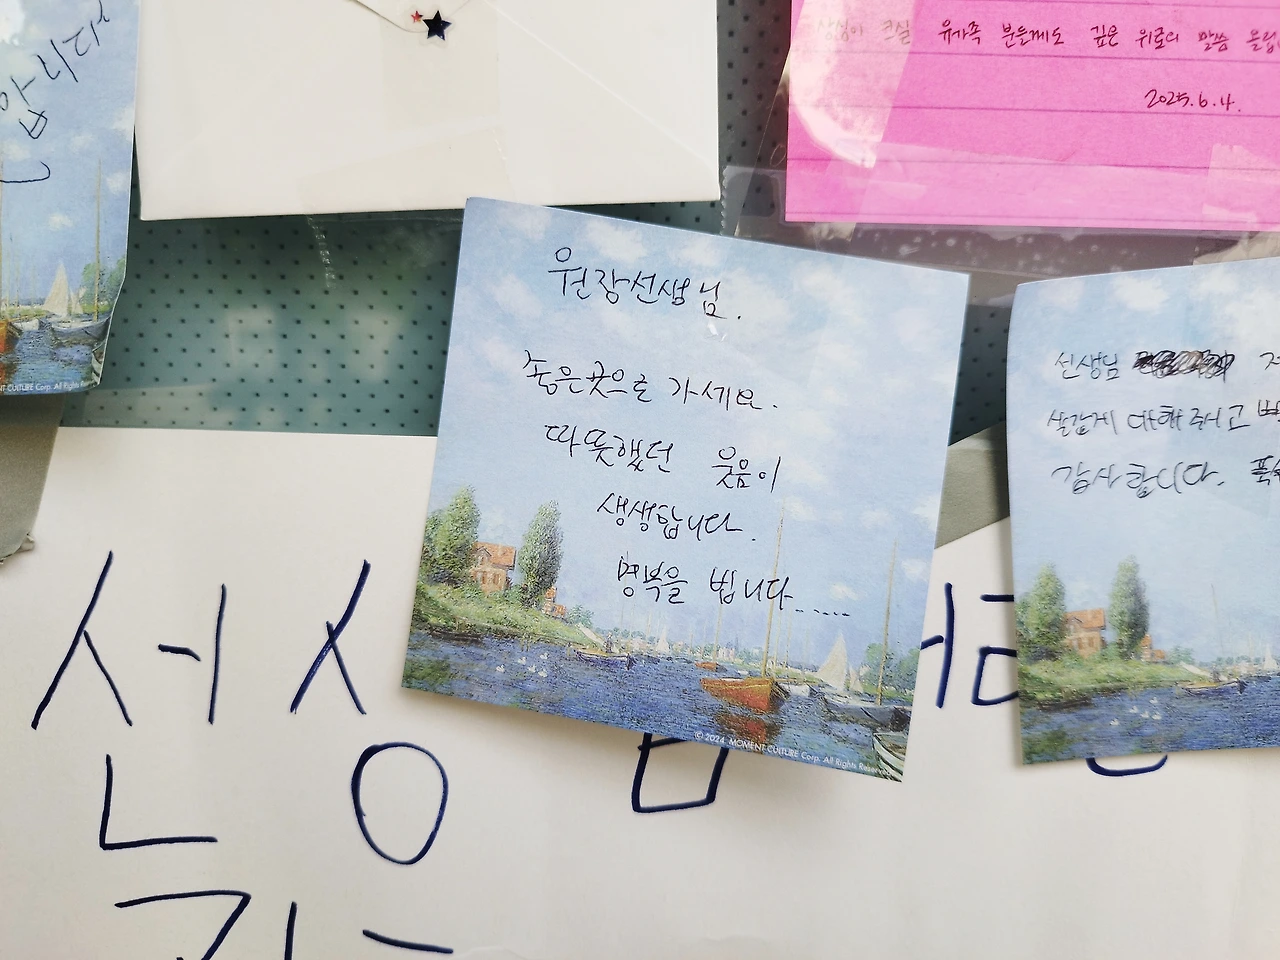 합니다
상심이 크실 유가족 분들께도 깊은 위로의 말씀 올립
2025.6.4.
원장선생님.
좋은곳으로 가세요.
따뜻했던 웃음이
생생합니다.
명복을 빕니다.....
© 2024. MOMENT CULTURE Corp. All Rights Reser
선생님
살갑게 대해주시고
감사합니다.
MENT CULTURE Corp. All Rights Re
선생님